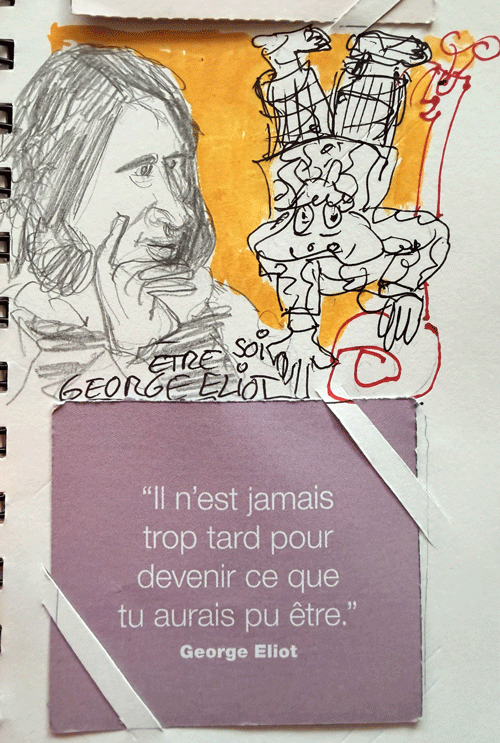 ETRE SOI
GEORGE ELIOT
“Il n’est jamais
trop tard pour
devenir ce que
tu aurais pu être.”
George Eliot